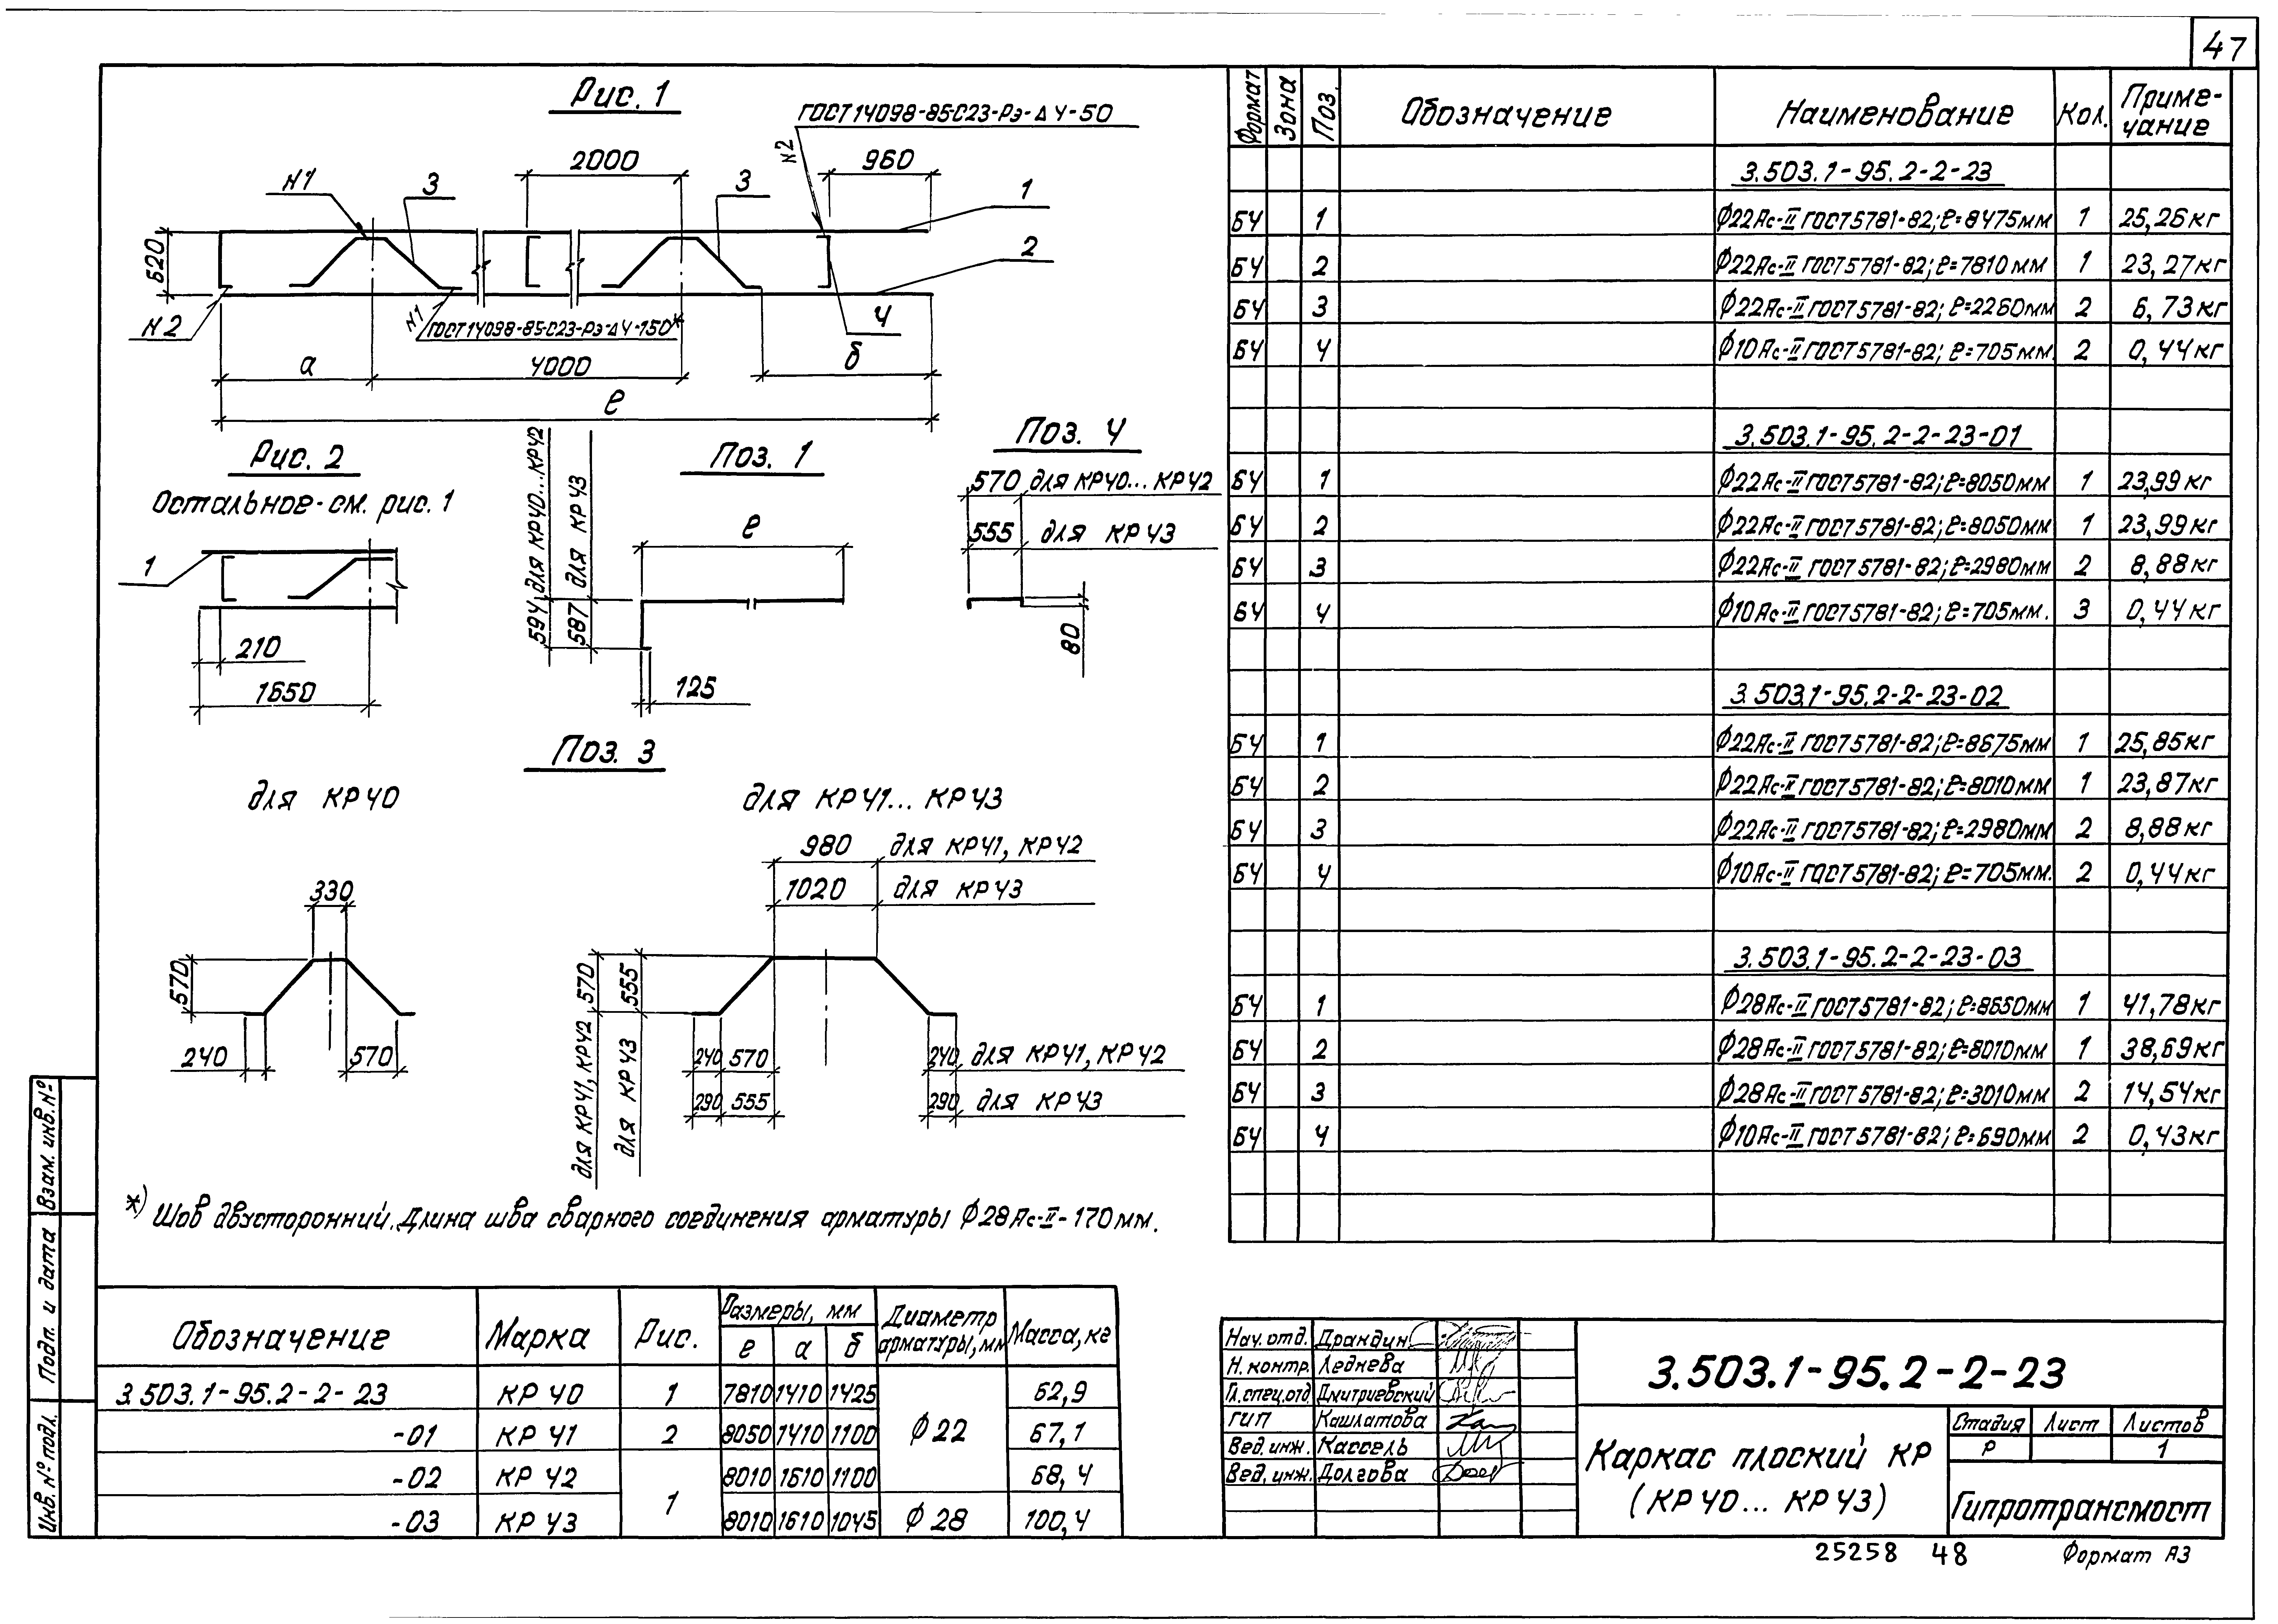 47
Рис. 1
ГОСТ 14098-85-С23-Рэ-Δ4-50
Н2
2000
960
Н1
3
3
1
2
620
4
Н2
Н1
ГОСТ 14098-85-С23-Рэ-Δ4-150*
а
4000
б
ℓ
Рис. 2
Остальное-см. рис. 1
1
210
1650
Поз. 1
594 для КР40...КР42
587 для КР43
ℓ
125
Поз. 4
570 для КР40... КР42
555 для КР43
80
Поз. 3
для КР40
330
570
240
570
для КР41... КР43
980 для КР41, КР42
1020 для КР43
570 для КР41, КР42
555 для КР43
240 570 240 для КР41, КР42
290 555 290 для КР43
*) Шов двусторонний. Длина шва сварного соединения арматуры ϕ28Ас-II-170мм.
Обозначение Марка Рис. Размеры, мм Диаметр арматуры, мм Масса, кг
ℓ а б
3.503.1-95.2-2-23 КР40 1 7810 1410 1425 ϕ22 62,9
-01 КР41 2 8050 1410 1100 67,1
-02 КР42 1 8010 1610 1100 68,4
-03 КР43 8010 1610 1045 ϕ28 100,4
Формат Зона Поз. Обозначение Наименование Кол. Приме-чание
3.503.1-95.2-2-23
БЧ 1 ϕ22Ас-II ГОСТ5781-82; ℓ=8475мм 1 25,26кг
БЧ 2 ϕ22Ас-II ГОСТ5781-82; ℓ=7810мм 1 23,27кг
БЧ 3 ϕ22Ас-II ГОСТ5781-82; ℓ=2260мм 2 6,73кг
БЧ 4 ϕ10Ас-II ГОСТ5781-82; ℓ=705мм. 2 0,44кг
3.503.1-95.2-2-23-01
БЧ 1 ϕ22Ас-II ГОСТ5781-82; ℓ=8050мм 1 23,99кг
БЧ 2 ϕ22Ас-II ГОСТ5781-82; ℓ=8050мм 1 23,99кг
БЧ 3 ϕ22Ас-II ГОСТ5781-82; ℓ=2980мм 2 8,88кг
БЧ 4 ϕ10Ас-II ГОСТ5781-82; ℓ=705мм. 3 0,44кг
3.503.1-95.2-2-23-02
БЧ 1 ϕ22Ас-II ГОСТ5781-82; ℓ=8675мм 1 25,85кг
БЧ 2 ϕ22Ас-II ГОСТ5781-82; ℓ=8010мм 1 23,87кг
БЧ 3 ϕ22Ас-II ГОСТ5781-82; ℓ=2980мм 2 8,88кг
БЧ 4 ϕ10Ас-II ГОСТ5781-82; ℓ=705мм. 2 0,44кг
3.503.1-95.2-2-23-03
БЧ 1 ϕ28Ас-II ГОСТ5781-82; ℓ=8650мм 1 41,78кг
БЧ 2 ϕ28Ас-II ГОСТ5781-82; ℓ=8010мм 1 38,69кг
БЧ 3 ϕ28Ас-II ГОСТ5781-82; ℓ=3010мм 2 14,54кг
БЧ 4 ϕ10Ас-II ГОСТ5781-82; ℓ=690мм 2 0,43кг
Нач. отд. Драндин
Н. контр. Леднева
Гл. спец. отд. Дмитриевский
ГИП Кашлатова
Вед. инж. Кассель
Вед. инж. Долгова
3.503.1-95.2-2-23
Каркас плоский КР
(КР40... КР43)
Стадия Лист Листов
Р 1
Гипротрансмост
25258 48
Формат А3
Взам. инв. №
Подп. и дата
Инв. № подл.